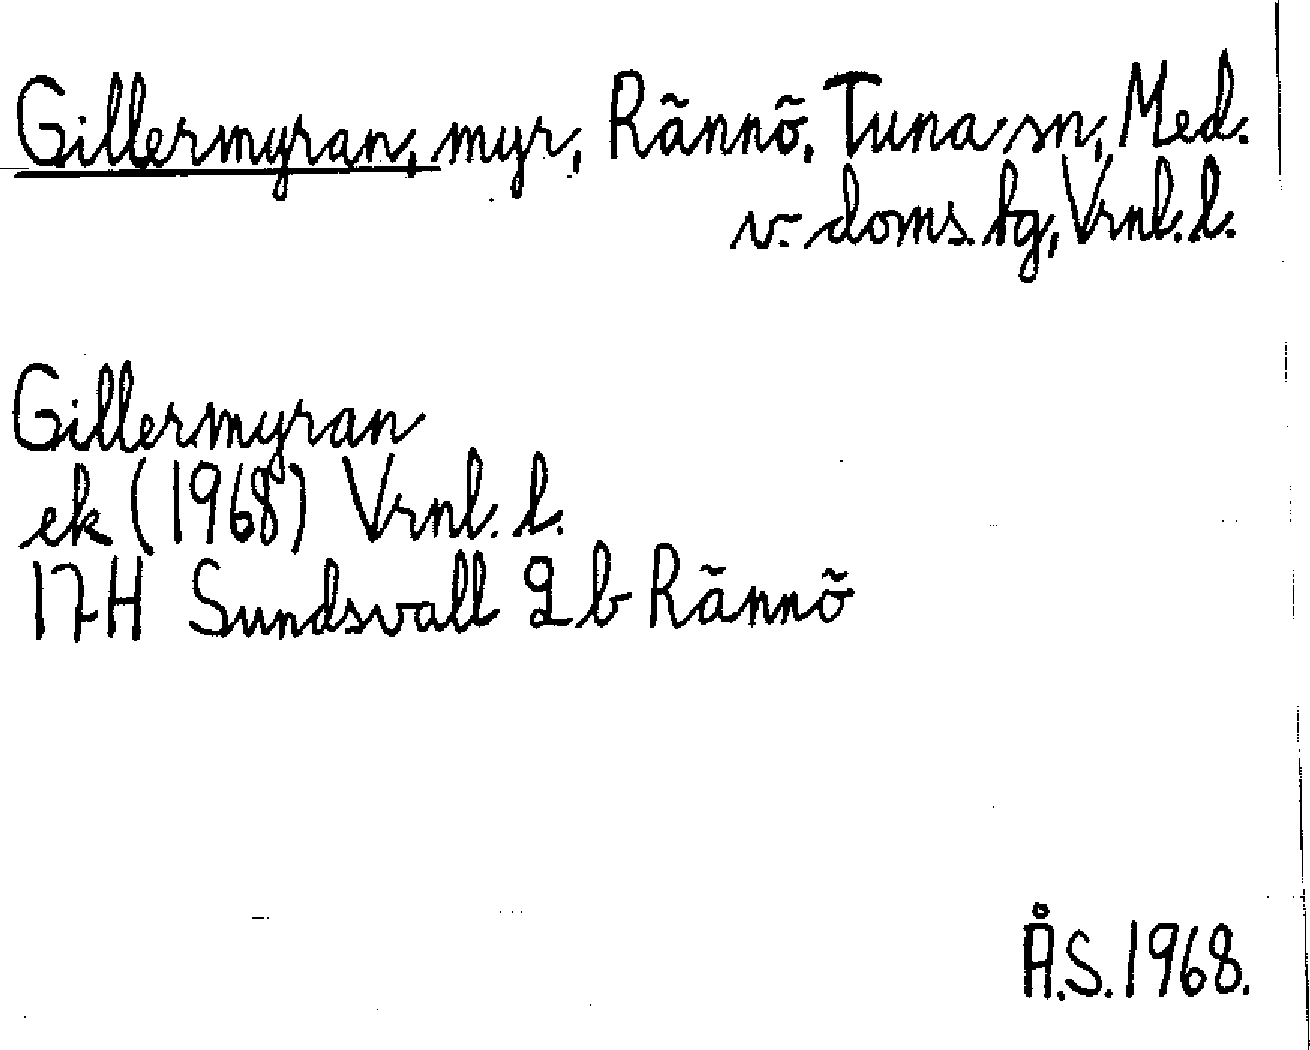 Gillermyran, myr, Rännö, Tuna sn, Med.
v. doms. fg, Vrnl. l.
Gillermyran
ek (1968) Vrnl. l.
17H Sundsvall 2 b Rännö
Å.S. 1968.